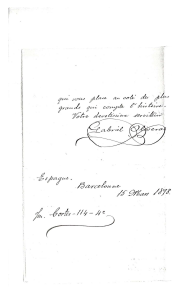 que vous place au coté du plus
grande qui compte l'histoire.
Votre devotissime serviteur
Gabriel
Espagne.
Barcelonne
15 Mars 1898
Cortes - 114 - 4º